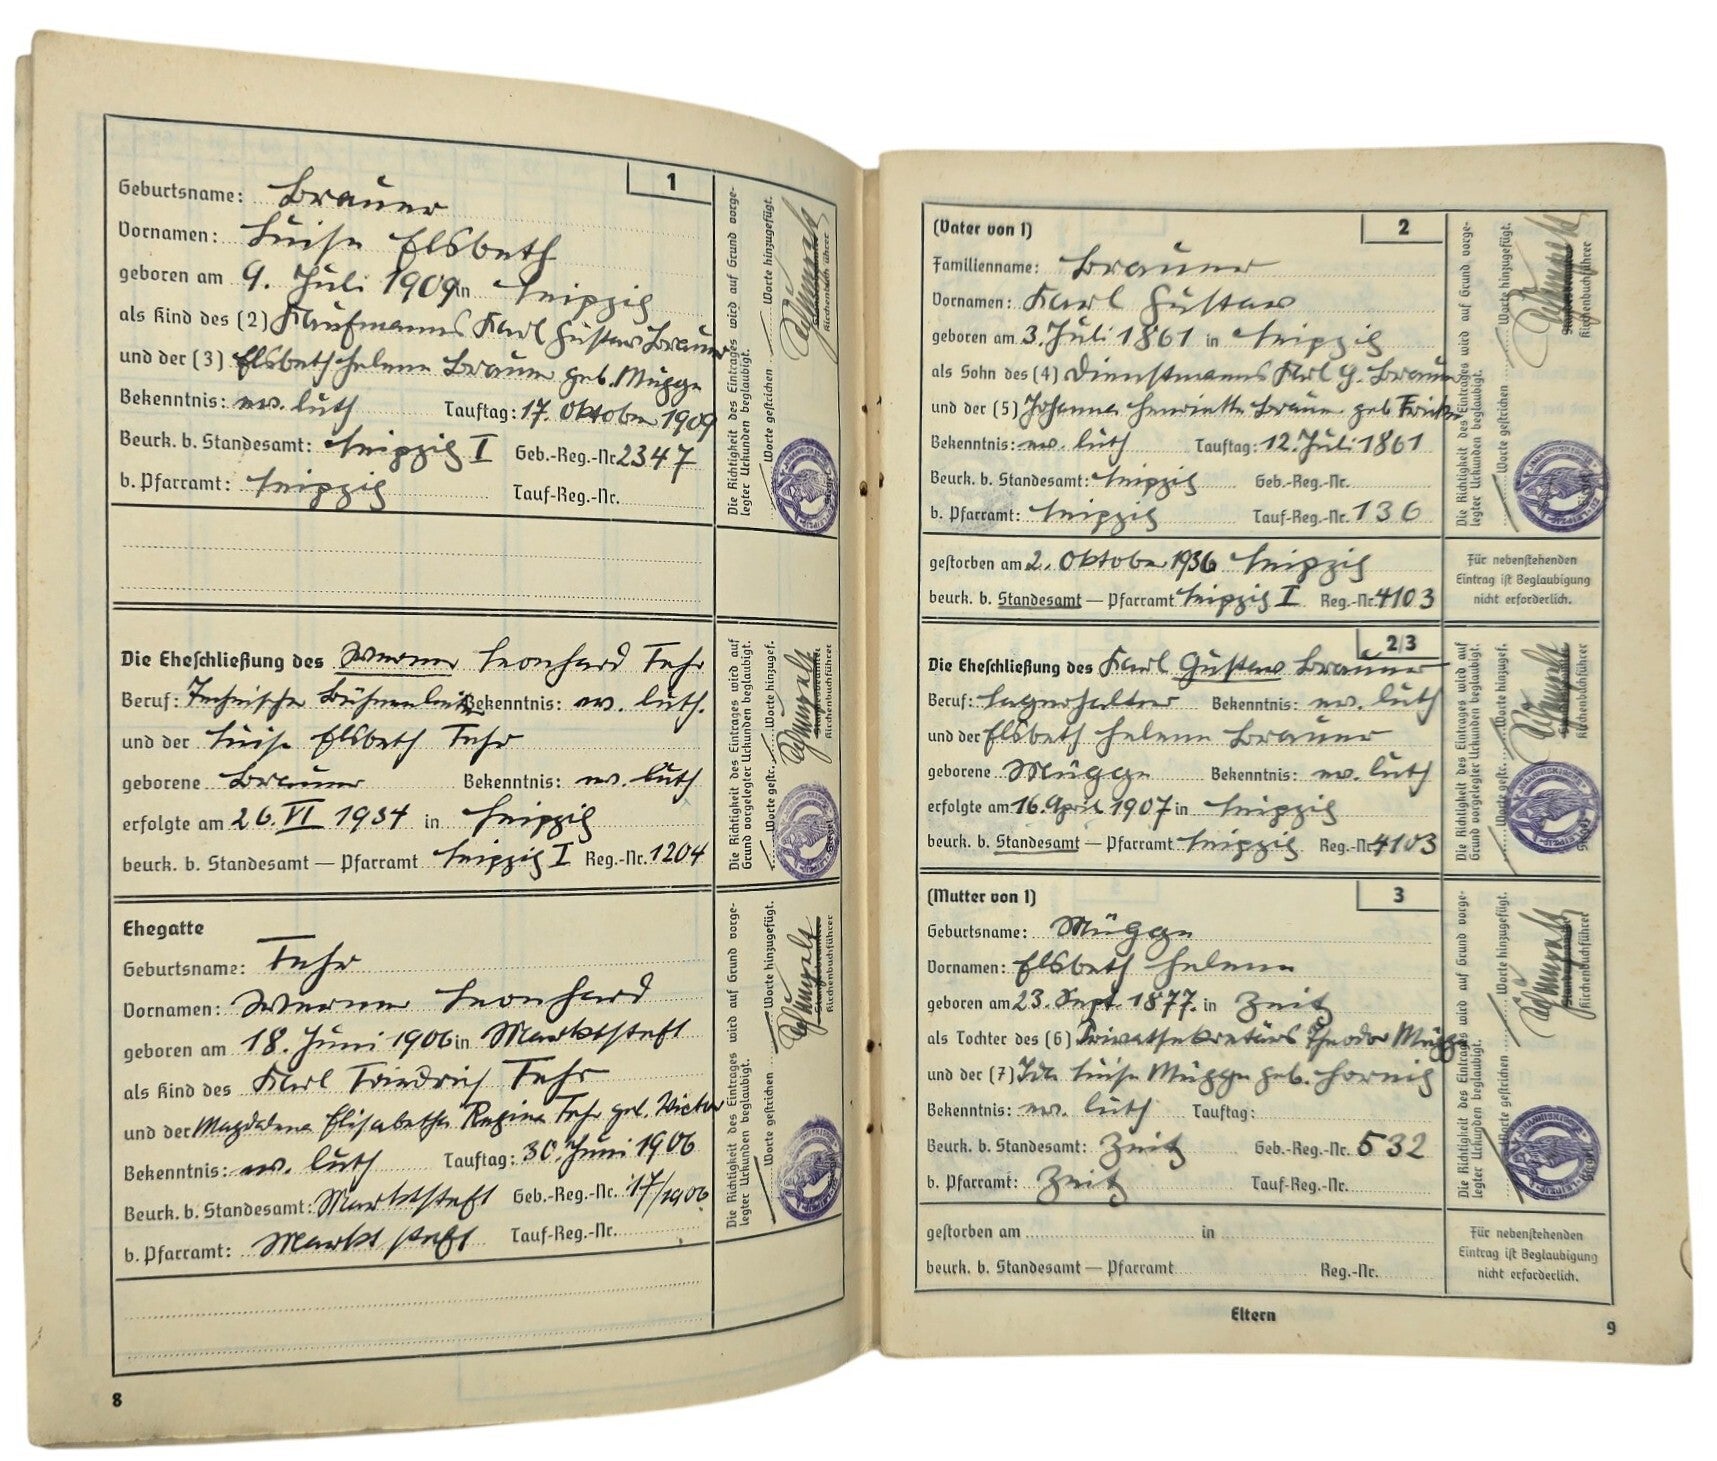 1
Geburtsname: Brauer
Vornamen: Luise Elsbeth
geboren am 9. Juli 1909 in Leipzig
als Kind des (2) Kaufmanns Karl Gustav Brauer
und der (3) Elsbeth Helene Brauer geb. Mügge
Bekenntnis: ev. luth Tauftag: 17. Oktober 1909
Beurk. b. Standesamt: Leipzig I Geb.-Reg.-Nr. 2347
b. Pfarramt: Leipzig Tauf-Reg.-Nr.
Die Richtigkeit des Eintrages wird auf Grund vorge-
legter Urkunden beglaubigt.
Worte gestrichen Worte hinzugefügt.
Kirchenbuchführer
Siegel
Die Eheschließung des Werner Leonhard Fehr
Beruf: Technischer Bekenntnis: ev. luth.
und der Luise Elsbeth Fehr
geborene Brauer Bekenntnis: ev. luth
erfolgte am 26. VI 1934 in Leipzig
beurk. b. Standesamt — Pfarramt Leipzig I Reg.-Nr. 1204
Die Richtigkeit des Eintrages wird auf
Grund vorgelegter Urkunden beglaubigt.
Worte gestr. Worte hinzugef.
Standesbeamter
Kirchenbuchführer
Siegel
Ehegatte
Geburtsname: Fehr
Vornamen: Werner Leonhard
geboren am 18. Juni 1906 in Marktsteft
als Kind des Karl Friedrich Fehr
und der Magdalena Elisabetha Regina Fehr geb. Victor
Bekenntnis: ev. luth Tauftag: 30. Juni 1906
Beurk. b. Standesamt: Marktsteft Geb.-Reg.-Nr. 17/1906
b. Pfarramt: Marktsteft Tauf-Reg.-Nr.
Die Richtigkeit des Eintrages wird auf Grund vorge-
legter Urkunden beglaubigt.
Worte gestrichen Worte hinzugefügt.
Standesbeamter
Kirchenbuchführer
8
(Vater von 1) 2
Familienname: Brauer
Vornamen: Karl Gustav
geboren am 3. Juli 1861 in Leipzig
als Sohn des (4) Dienstmanns Karl G. Brauer
und der (5) Johanna Henriette Brauer geb Fricke
Bekenntnis: ev. luth Tauftag: 12. Juli 1861
Beurk. b. Standesamt: Leipzig Geb.-Reg.-Nr.
b. Pfarramt: Leipzig Tauf-Reg.-Nr. 136
Die Richtigkeit des Eintrages wird auf Grund vorge-
legter Urkunden beglaubigt.
Worte gestrichen Worte hinzugefügt.
Standesbeamter
Kirchenbuchführer
Siegel
gestorben am 2. Oktober 1936 Leipzig
beurk. b. Standesamt — Pfarramt Leipzig I Reg.-Nr. 4103
Für nebenstehenden
Eintrag ist Beglaubigung
nicht erforderlich.
2/3
Die Eheschließung des Karl Gustav Brauer
Beruf: Lagerhalter Bekenntnis: ev. luth
und der Elsbeth Helene Brauer
geborene Mügge Bekenntnis: ev. luth
erfolgte am 16. April 1907 in Leipzig
beurk. b. Standesamt — Pfarramt Leipzig Reg.-Nr. 4103
Die Richtigkeit des Eintrages wird auf
Grund vorgelegter Urkunden beglaubigt.
Worte gestr. Worte hinzugef.
Standesbeamter
Kirchenbuchführer
Siegel
(Mutter von 1) 3
Geburtsname: Mügge
Vornamen: Elsbeth Helene
geboren am 23. Sept. 1877. in Zeitz
als Tochter des (6) Privatsekretärs Theodor Mügge
und der (7) Ida Luise Mügge geb. Hornig
Bekenntnis: ev. luth Tauftag:
Beurk. b. Standesamt: Zeitz Geb.-Reg.-Nr. 532
b. Pfarramt: Zeitz Tauf-Reg.-Nr.
Die Richtigkeit des Eintrages wird auf Grund vorge-
legter Urkunden beglaubigt.
Worte gestrichen Worte hinzugefügt.
Standesbeamter
Kirchenbuchführer
Siegel
gestorben am in
beurk. b. Standesamt — Pfarramt Reg.-Nr.
Für nebenstehenden
Eintrag ist Beglaubigung
nicht erforderlich.
Eltern
9